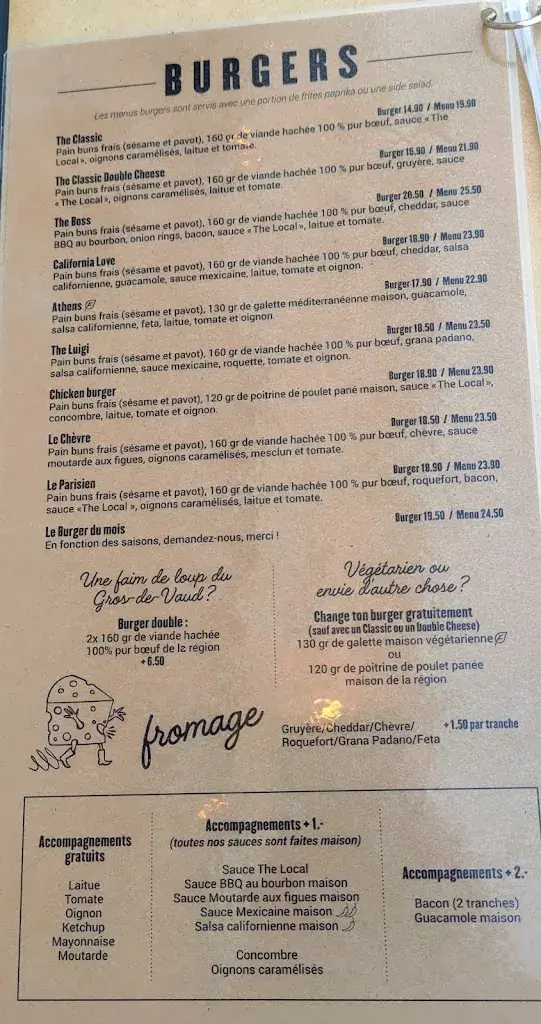 BURGERS
Les menus burgers sont servis avec une portion de frites paprika ou une side salad.
The Classic
Burger 14.90 / Menu 19.90
Pain buns frais (sésame et pavot), 160 gr de viande hachée 100 % pur bœuf, sauce «The
Local», oignons caramélisés, laitue et tomate.
The Classic Double Cheese
Burger 16.90 / Menu 21.90
Pain buns frais (sésame et pavot), 160 gr de viande hachée 100 % pur bœuf, gruyère, sauce
«The Local», oignons caramélisés, laitue et tomate.
The Boss
Burger 20.50 / Menu 25.50
Pain buns frais (sésame et pavot), 160 gr de viande hachée 100 % pur bœuf, cheddar, sauce
BBQ au bourbon, onion rings, bacon, sauce «The Local», laitue et tomate.
California Love
Burger 18.90 / Menu 23.90
Pain buns frais (sésame et pavot), 160 gr de viande hachée 100 % pur bœuf, cheddar, salsa
californienne, guacamole, sauce mexicaine, laitue, tomate et oignon.
Athens
Burger 17.90 / Menu 22.90
Pain buns frais (sésame et pavot), 130 gr de galette méditerranéenne maison, guacamole,
salsa californienne, feta, laitue, tomate et oignon
The Luigi
Burger 18.50 / Menu 23.50
Pain buns frais (sésame et pavot), 160 gr de viande hachée 100 % pur bœuf, grana padano,
salsa californienne, sauce mexicaine, roquette, tomate et oignon.
Chicken burger
Burger 18.90 / Menu 23.90
Pain buns frais (sésame et pavot), 120 gr de poitrine de poulet pané maison, sauce «The Local»,
concombre, laitue, tomate et oignon.
Le Chèvre
Burger 18.50 / Menu 23.50
Pain buns frais (sésame et pavot), 160 gr de viande hachée 100 % pur bœuf, chèvre, sauce
moutarde aux figues, oignons caramélisés, mesclun et tomate.
Le Parisien
Burger 18.90 / Menu 23.90
Pain buns frais (sésame et pavot), 160 gr de viande hachée 100 % pur bœuf, roquefort, bacon,
sauce «The Local », oignons caramélisés, laitue et tomate.
Le Burger du mois
Burger 19.50 / Menu 24.50
En fonction des saisons, demandez-nous, merci !
Une faim de loup du
Gros-de-Vaud?
Burger double :
2x 160 gr de viande hachée
100% pur bœuf de la région
+6.50
Végétarien ou
envie d'autre chose?
Change ton burger gratuitement
(sauf avec un Classic ou un Double Cheese)
130 gr de galette maison végétarienne
ou
120 gr de poitrine de poulet panée
maison de la région
fromage
Gruyère/Cheddar/Chèvre/ +1.50 par tranche
Roquefort/Grana Padano/Feta
Accompagnements
gratuits
Laitue
Tomate
Oignon
Ketchup
Mayonnaise
Moutarde
Accompagnements +1.-
(toutes nos sauces sont faites maison)
Sauce The Local
Sauce BBQ au bourbon maison
Sauce Moutarde aux figues maison
Sauce Mexicaine maison
Salsa californienne maison
Concombre
Oignons caramélisés
Accompagnements +2.-
Bacon (2 tranches)
Guacamole maison